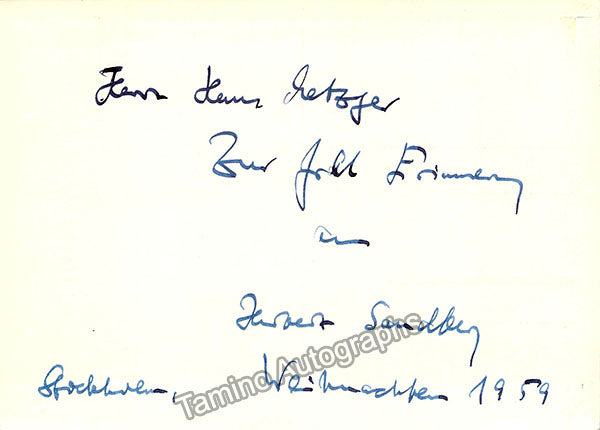 Herrn Hans Metzger
Zur frdl Erinnerung
an
Herbert Sandberg
Stockholm, Weihnachten 1959
Tamino Autographs